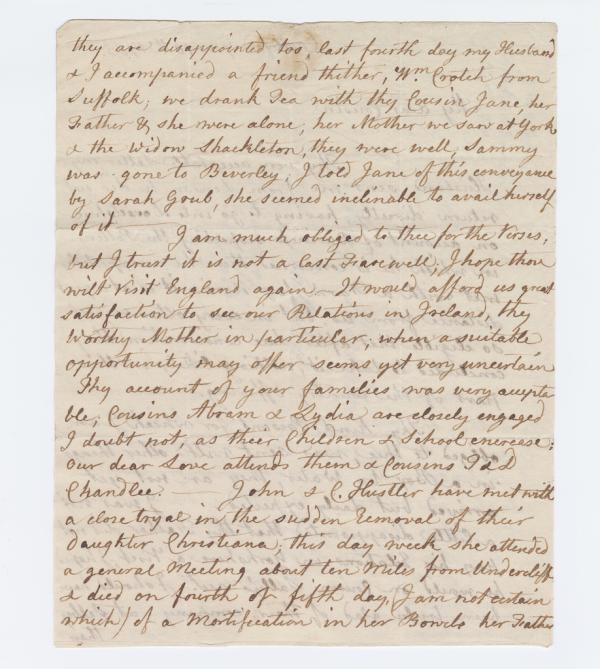 they are disappointed too, last fourth day my Husband
& I accompanied a friend thither, Wm Crotch from
Suffolk; we drank Tea with thy Cousin Jane, her
Father & she were alone, her Mother we saw at York
& the Widow Shackleton, they were well, Sammy
was gone to Beverley, I told Jane of this conveyance
by Sarah Goub, she seemed inclinable to avail herself
of it — I am much obliged to thee for the Verses,
but I trust it is not a last Farewell, I hope thou
wilt visit England again — It would afford us great
satisfaction to see our Relations in Ireland, thy
Worthy Mother in particular, when a suitable
opportunity may offer seems yet very uncertain
Thy account of your families was very accepta
ble, Cousins Abram & Lydia are closely engaged
I doubt not, as their Children & School encrease;
our dear Love attends them & Cousins T & D
Chandlee. — John & C. Hustler have met with
a close tryal in the sudden removal of their
Daughter Christiana, this day week she attended
a general Meeting about ten Miles from Undercliff
& died on fourth of fifth day, (I am not certain
which) of a Mortification in her Bowels her Father